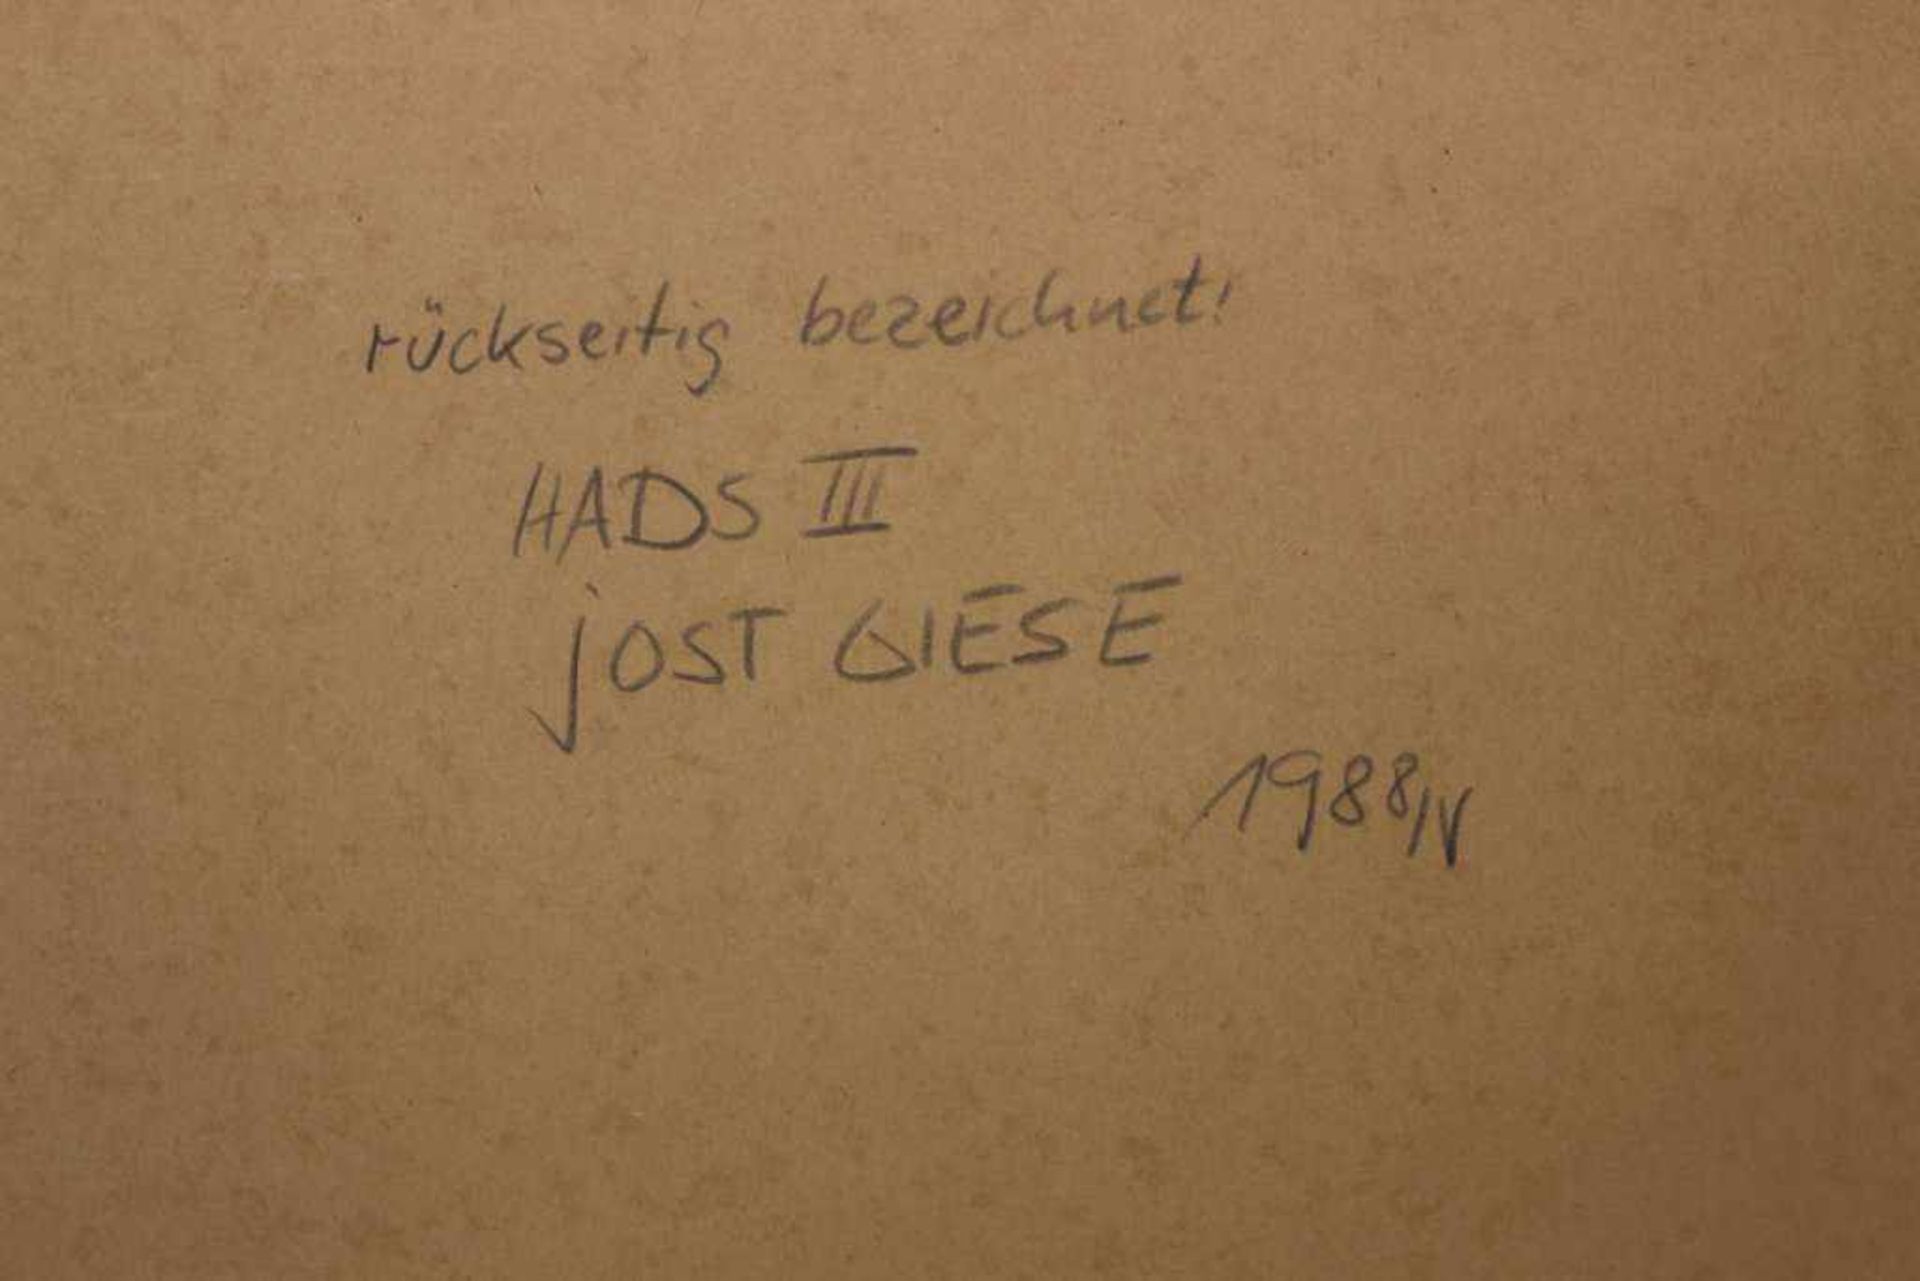 rückseitig bezeichnet:
HADS III
jOST GIESE
1988/IV